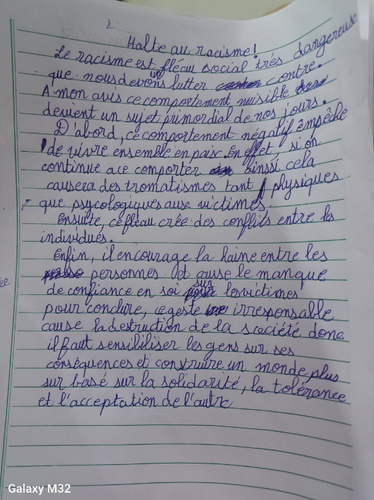 Halte au racisme!
Le racisme est un fléau social très dangereuse
que nous devons lutter contre.
A mon avis ce comportement nuisible
devient un sujet primordial de nos jours.
D'abord, ce comportement négatif empêche
de vivre ensemble en paix. En effet si on
continue a ce comporter ainssi cela
causera des tromatismes tant physiques
que psycologiques aux victimes
Ensuite, ce fléau crée des conflits entre les
individues.
Enfin, il encourage la haine entre les
personnes et cause le manque
de confiance en soi sur les victimes
pour conclure, ce geste irresponsable
cause la destruction de la société donc
il faut sensibiliser les gens sur ses
conséquences et construire un monde plus
sur basé sur la solidarité, la tolérance
et l'acceptation de l'autre
Galaxy M32